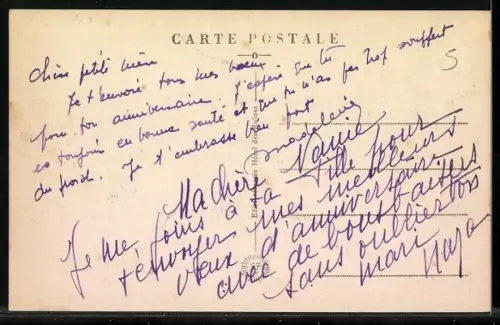 CARTE POSTALE
5
Chère petite mère
Je t'envoie tous mes vœux
pour ton anniversaire. J'espère que tu
es toujours en bonne santé et que tu n'as pas trop souffert
du froid. Je t'embrasse bien fort
Madeleine
Ma chère Mamie
Je me joins à ta fille pour
t'envoyer mes meilleurs
vœux d'anniversaire
avec de bons baisers
sans oublier ton
mari